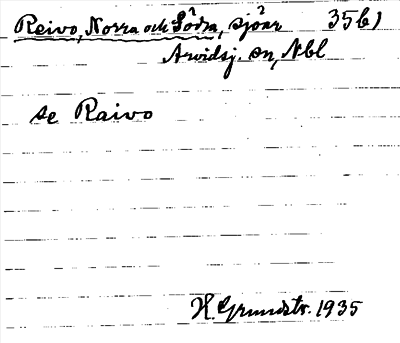 Reivo, Norra och Södra, sjöar 35b)
Arvidsj. sn, Nbl
se Raivo
H. Grundstr. 1935